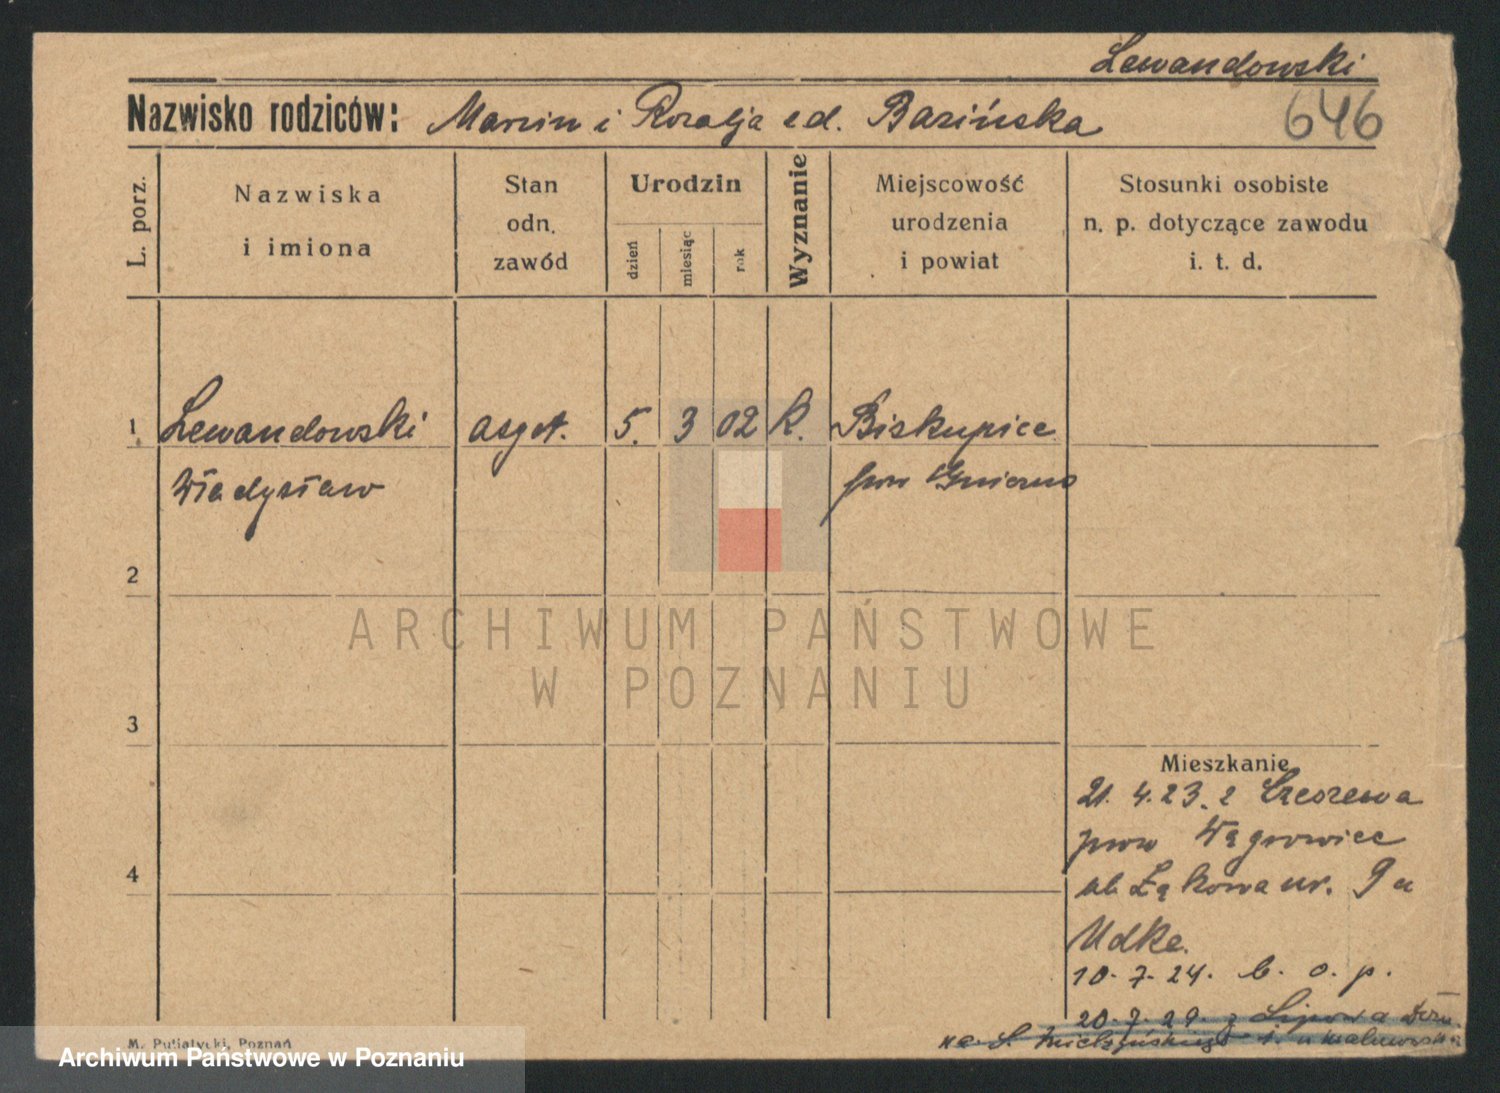 Lewandowski
Nazwisko rodziców: Marcin i Rozalja zd. Bazińska
646
L. porz.
Nazwiska
i imiona
Stan
odn.
zawód
Urodzin
dzień
miesiąc
rok
Wyznanie
Miejscowość
urodzenia
i powiat
Stosunki osobiste
n. p. dotyczące zawodu
i. t. d.
1 Lewandowski 5. 3 02 K. Biskupice
Władysław pow Gniezno
2
3
4
Mieszkanie
21. 4. 23. z Czeszewa
pow Wągrowiec
ul. Łąkowa nr. 9 u
10. 7. 24. b. o. p.
20. 7. 29. z
M. Putiatycki, Poznań
ARCHIWUM PAŃSTWOWE
W POZNANIU
Archiwum Państwowe w Poznaniu